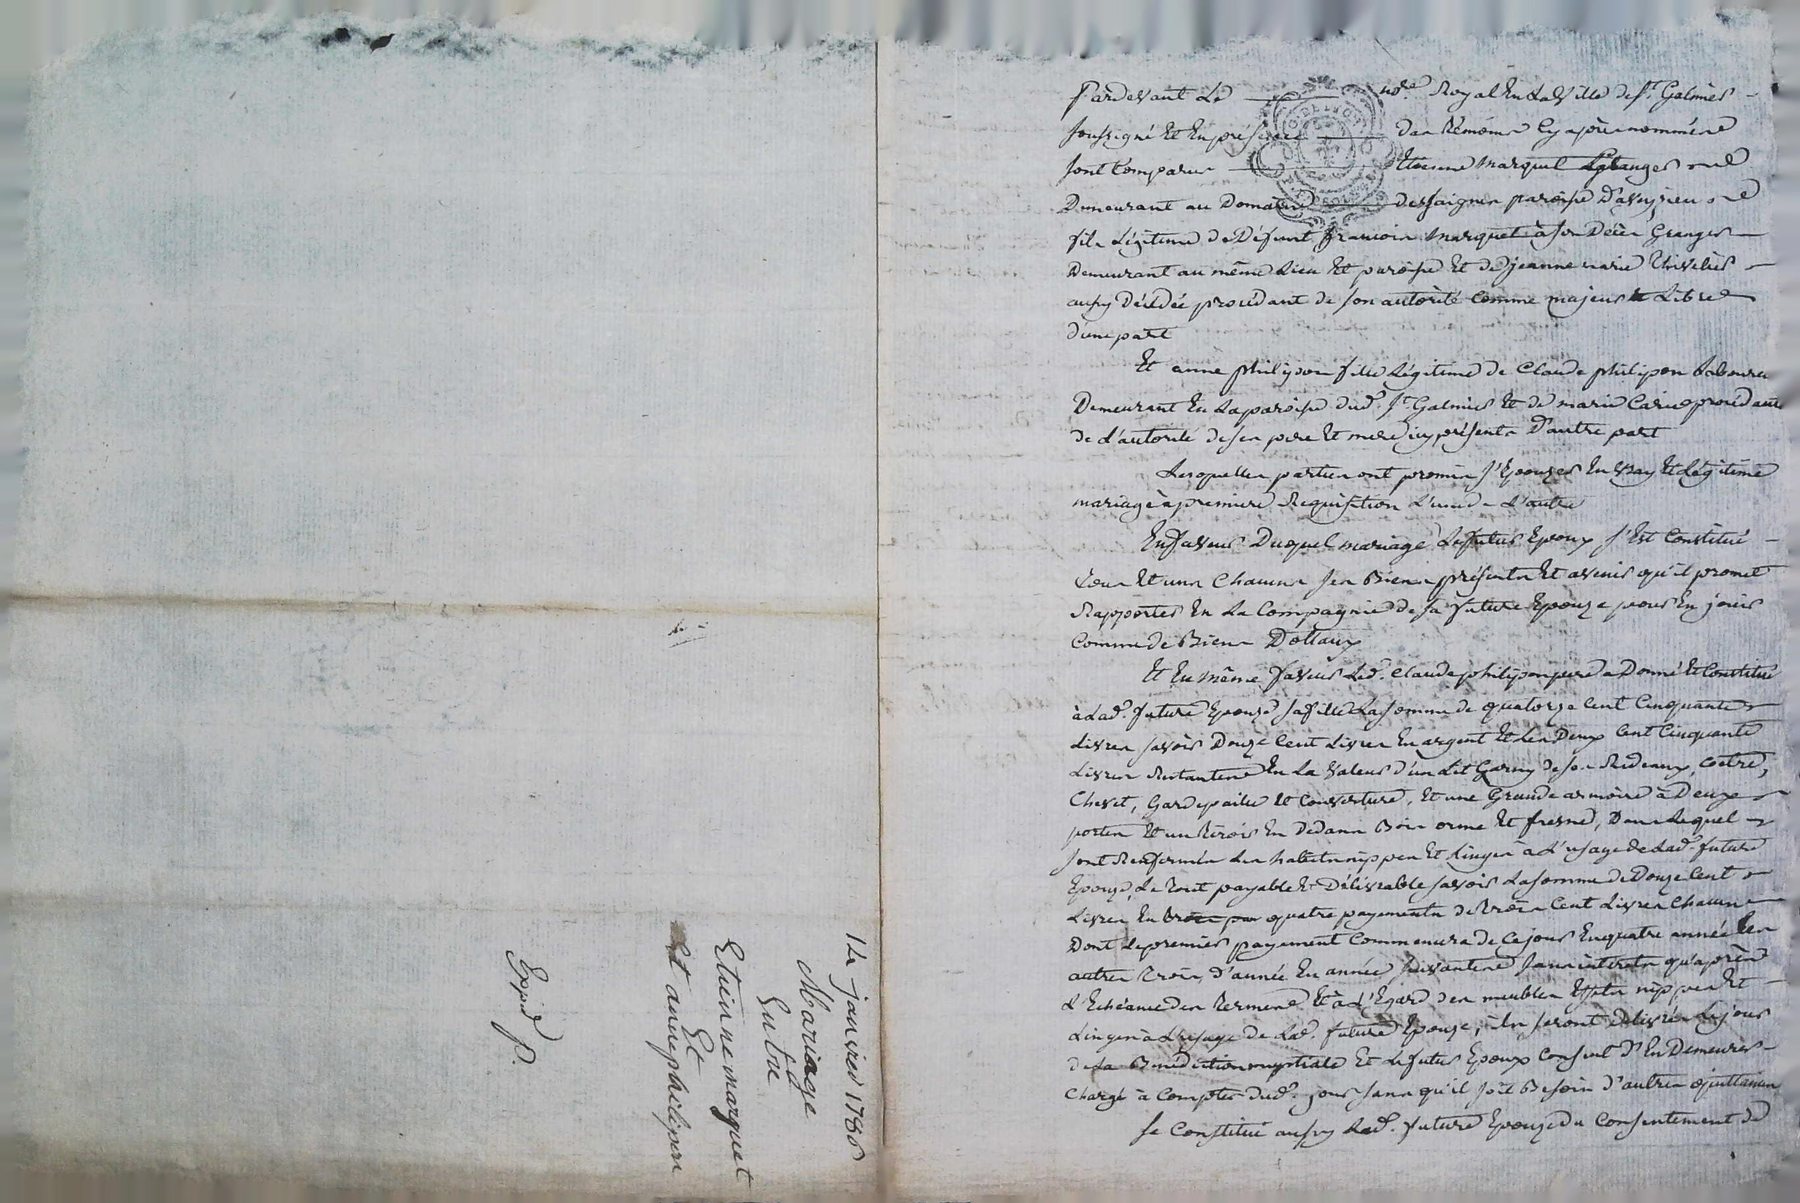 14 janvier 1786
Mariage
Entre
Etienne marquet
Et
Et anne philipon
Expié
Pardevant Le no.re Royal En La Ville de St. Galmier
soussigné Et En présence des témoins cy après nommés
sont Comparus Etienne marquet Granger
Demeurant au Domaine dessaignes paroisse D'aveyzieu
fils Légitime de Défunt françois marquet à son Décès Granger
Demeurant au même Lieu Et paroisse Et de jeanne marie
aussy Décédée procédant de son autorité comme majeur & Libre
d'une part
Et anne philipon fille Légitime de Claude philipon Laboureur
Demeurant En La paroisse dud. St. Galmier Et de marie procédante
de L'autorité de ses pere Et mere icy présents D'autre part
Lesquelles parties ont promis s'Epouzer En vray Et Légitime
mariage à premiere Requisition L'un de L'autre
En faveur Duquel mariage Le futur Epoux s'Est Constitué
tous Et uns Chacuns ses Biens présents Et avenir qu'il promet
Rapporter En La Compagnie de sa future Epouze pour En jouir
Comme de Biens Dottaux
Et En même faveur Led. Claude philipon pere a Donné Et Constitué
à Lad. future Epouze sa fille La somme de quatorze Cent Cinquante
Livres savoir Douze Cent Livres En argent Et Les Deux Cent Cinquante
Livres Restantes En La Valeur d'un Lit Garny de ses Rideaux, coetre,
Chevet, Gardepaille Et Couverture, Et une Grande armoire à Deux
portes Et un tiroir En Dedans Bois orme Et fresne, Dans Lequel
sont Renfermés Les habits nippes Et Linges à L'usage de Lad. future
Epouze, Le tout payable Et Délivrable savoir La somme de Douze Cent
Livres En quatre payements de trois Cent Livres Chacun
Dont Le premier payement Commencera de Ce jour En quatre années Les
autres trois, d'année En année, suivantes sans interets qu'après
L'Echéance des termes Et à L'Egard des meubles Effets nippes Et
Linges à L'usage de Lad. future Epouze, ils seront Délivrés Le jour
de La Benediction nuptiale Et Le futur Epoux Consent D'En Demeurer
Chargé à Compter dud. jour sans qu'il soit Besoin d'autre quittance
se Constitue aussy Lad. future Epouze du Consentement de